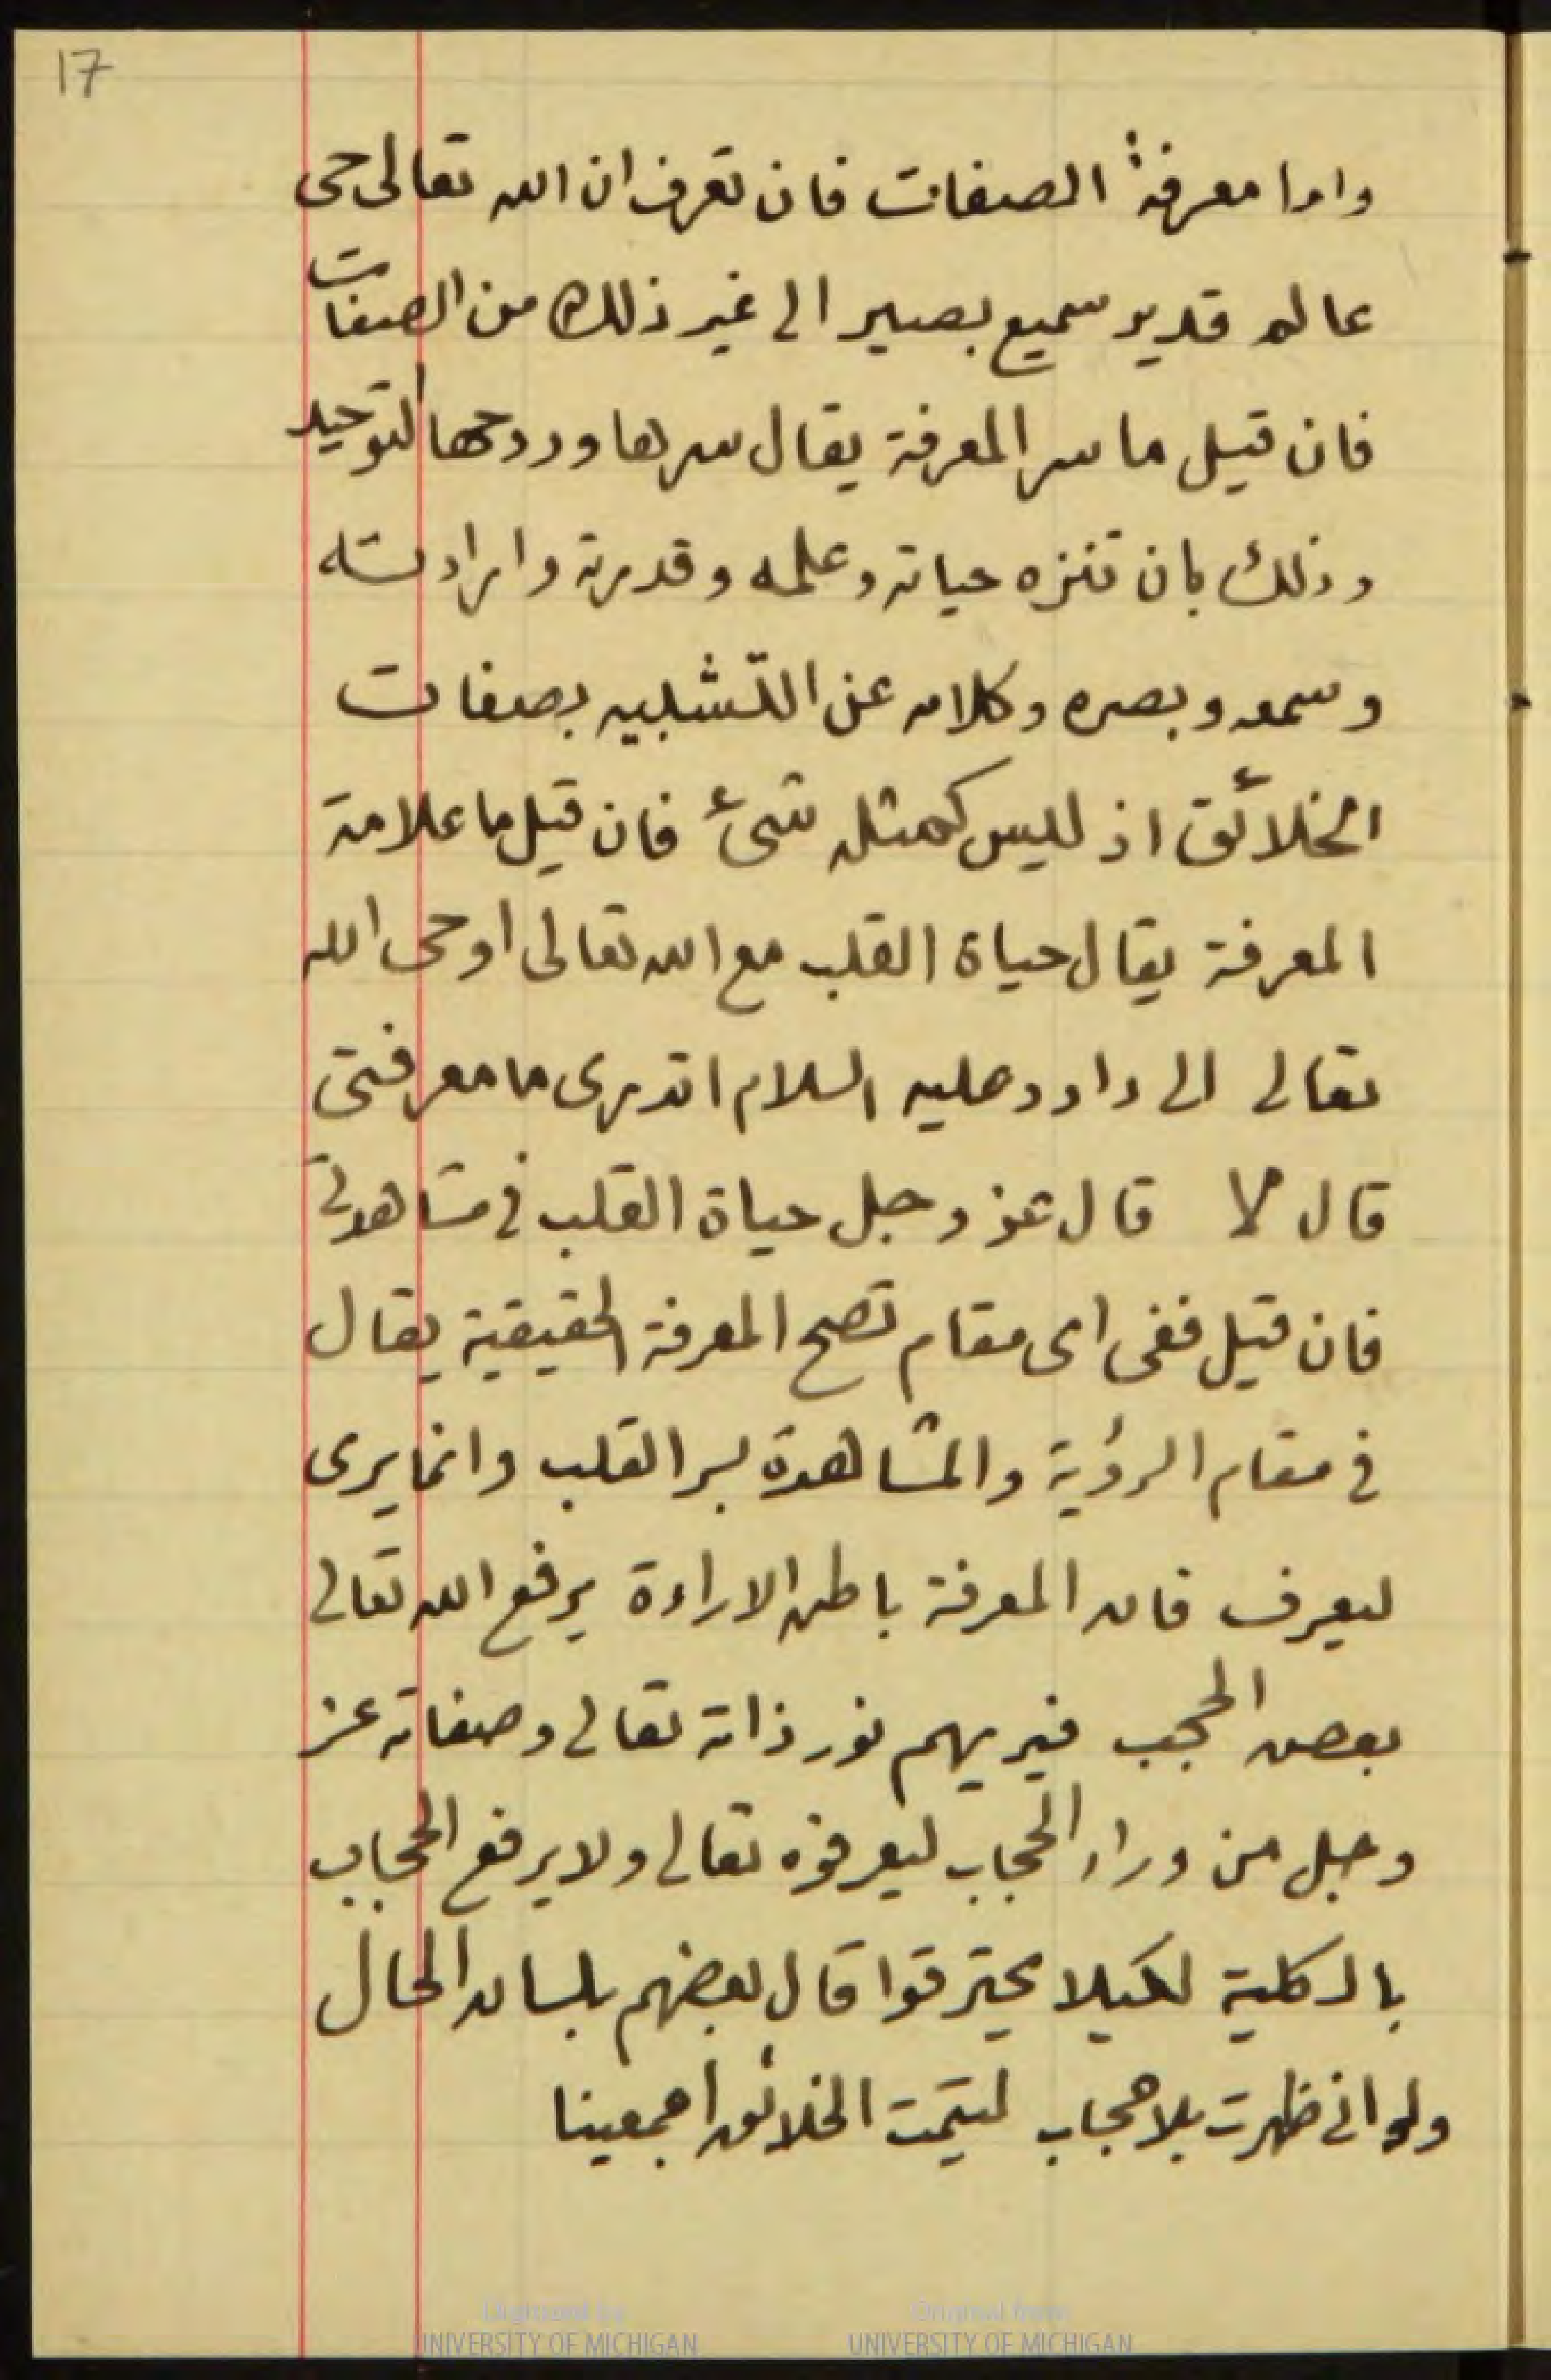 17
واما معرفة الصفات فان تعرف ان الله تعالى حى
عالم قدير سميع بصير الى غير ذلك من الصفات
فان قيل ما سر المعرفة يقال سرها وروحها التوحيد
وذلك بان تنزه حياته وعلمه وقدرته وارادته
وسمعه وبصره وكلامه عن التشبيه بصفات
الخلائق اذ ليس كمثله شئ فان قيل ما علامة
المعرفة يقال حياة القلب مع الله تعالى اوحى الله
تعالى الى داود عليه السلام اتدرى ما معرفتى
قال لا قال عز وجل حياة القلب فى مشاهدتى
فان قيل ففى اى مقام تصح المعرفة الحقيقية يقال
فى مقام الرؤية والمشاهدة بسر القلب وانما يرى
ليعرف فان المعرفة باطن الاراءة يرفع الله تعالى
بعض الحجب فيريهم نور ذاته تعالى وصفاته عز
وجل من وراء الحجاب ليعرفوه تعالى ولا يرفع الحجاب
بالكلية لكيلا يحترقوا قال بعضهم بلسان الحال
ولو انى ظهرت بلا حجاب ليتمت الخلائق اجمعينا
Digitized by
UNIVERSITY OF MICHIGAN
Original from
UNIVERSITY OF MICHIGAN